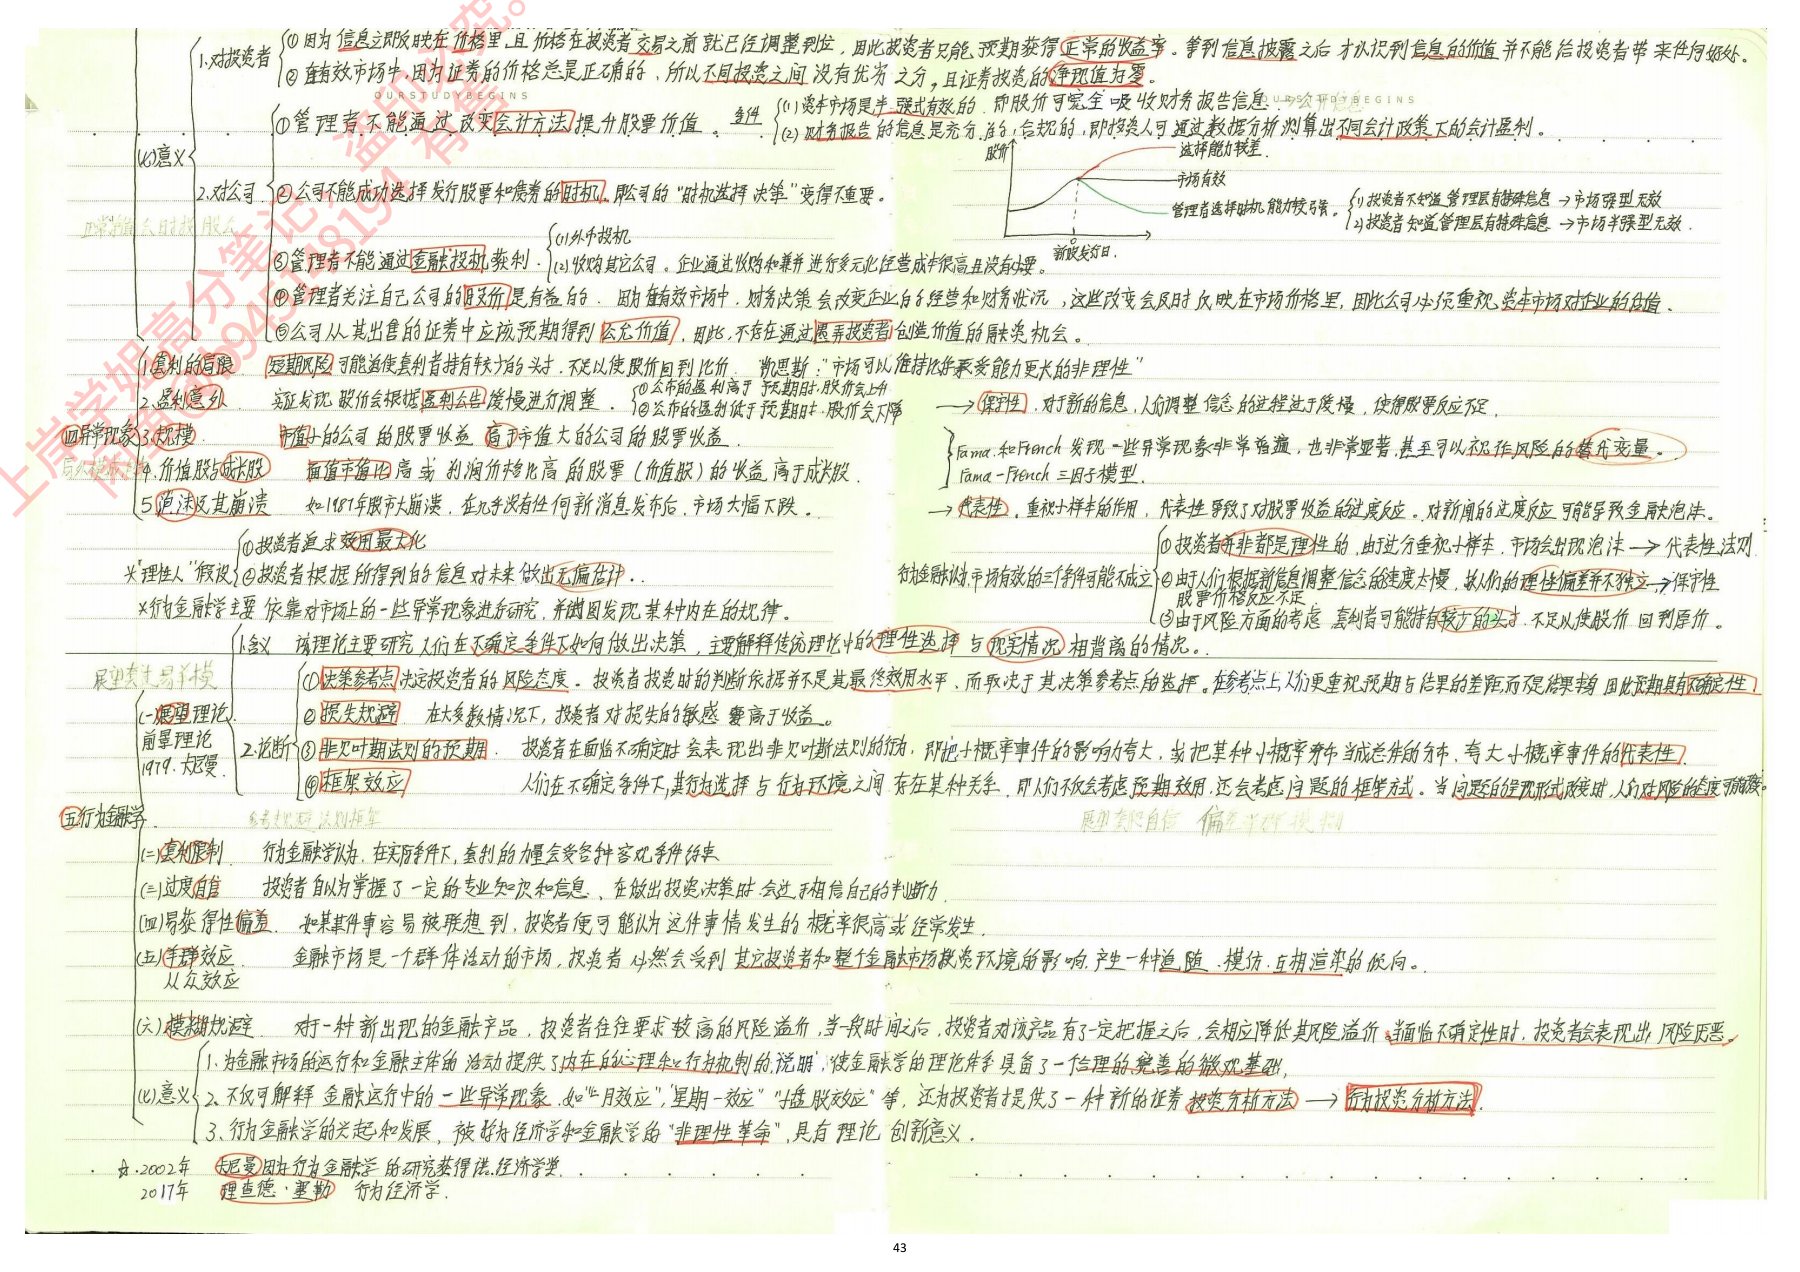 (七)意义
1.对投资者
①因为信息立即反映在价格里,且价格在投资者交易之前就已经调整到位,因此投资者只能预期获得正常的收益率。等到信息披露之后才认识到信息的价值并不能给投资者带来任何好处。
②在有效市场中,因为证券的价格总是正确的,所以不同投资之间没有优劣之分,且证券投资的净现值为零。
OURSTUDYBEGINS
OURSTUDYBEGINS
2.对公司
①管理者不能通过改变会计方法提升股票价值。
条件
(1)资本市场是半强式有效的.即股价可完全吸收财务报告信息.→公开信息
(2)财务报告的信息是充分的,合规的,即投资人可通过数据分析测算出不同会计政策下的会计盈利。
股价
选择能力较差.
市场有效
管理者选择时机能力较强。
新股发行日.
(1)投资者不知道管理层有特殊信息→市场强型无效
(2)投资者知道管理层有特殊信息→市场半强型无效.
②公司不能成功选择发行股票和债券的时机.即公司的"时机选择决策"变得不重要。
③管理者不能通过金融投机获利.
(1)外币投机
(2)收购其它公司。企业通过收购和兼并进行多元化经营成本很高且没有必要。
④管理者关注自己公司的股价是有益的.因为在有效市场中,财务决策会改变企业的经营和财务状况,这些改变会及时反映在市场价格里,因此公司必须重视资本市场对企业的估值.
⑤公司从其出售的证券中应该预期得到公允价值,因此,不存在通过愚弄投资者创造价值的融资机会。
(四)异常现象
1.套利的局限 短期风险可能迫使套利者持有较少的头寸,不足以使股价回到比价. 凯恩斯:"市场可以维持比你承受能力更长的非理性"
2.盈利意外. 实证发现股价会根据盈利公告缓慢进行调整.
①公布的盈利高于预期时,股价会上升
②公布的盈利低于预期时,股价会下降
→保守性.对于新的信息,人们调整信念的过程过于缓慢,使得股票反应不足.
3.规模. 市值小的公司的股票收益高于市值大的公司的股票收益.
4.价值股与成长股 面值市值比高或利润价格比高的股票(价值股)的收益高于成长股.
Fama和French发现一些异常现象非常普遍,也非常显著,甚至可以视作风险的替代变量。
Fama-French三因子模型.
5.泡沫及其崩溃 如1987年股市大崩溃,在几乎没有任何新消息发布后,市场大幅下跌。
→代表性.重视小样本的作用,代表性导致了对股票收益的过度反应。对新闻的过度反应可能导致金融泡沫。
*"理性人"假设
①投资者追求效用最大化
②投资者根据所得到的信息对未来做出无偏估计..
行为金融认为市场有效的三个条件可能不成立
①投资者并非都是理性的,由于过分重视小样本,市场会出现泡沫→代表性法则
②由于人们根据新信息调整信念的速度太慢,故人们的理性偏差并不独立,→保守性
股票价格反应不足
③由于风险方面的考虑 套利者可能持有较少的头寸 不足以使股价回到原价。
*行为金融学主要依靠对市场上的一些异常现象进行研究,并试图发现某种内在的规律。
(五)行为金融学.
(一)展望理论
前景理论
1979.卡尼曼.
1.含义 该理论主要研究人们在不确定条件下如何做出决策,主要解释传统理论中的理性选择与现实情况相背离的情况。
2.论断
①决策参考点决定投资者的风险态度。投资者投资时的判断依据并不是其最终效用水平,而取决于其决策参考点的选择。在参考点上人们更重视预期与结果的差距而不是结果本身,因此预期具有不确定性
②损失规避 在大多数情况下,投资者对损失的敏感要高于收益。
③非贝叶斯法则的预期. 投资者在面临不确定时会表现出非贝叶斯法则的行为,即把小概率事件的影响力夸大,或把某种小概率分布当成总体的分布,夸大小概率事件的代表性.
④框架效应 人们在不确定条件下,其行为选择与行为环境之间存在某种关系,即人们不仅会考虑预期效用,还会考虑问题的框架方式。当问题的呈现形式改变时,人们对风险的态度可能改变。
(二)套利限制. 行为金融学认为,在实际条件下,套利的力量会受各种客观条件约束
(三)过度自信 投资者自以为掌握了一定的专业知识和信息、在做出投资决策时会过于相信自己的判断力.
(四)易获得性偏差 如某某件事容易被联想到,投资者便可能认为这件事情发生的概率很高或经常发生.
(五)羊群效应. 金融市场是一个群体活动的市场,投资者必然会受到其它投资者和整个金融市场投资环境的影响,产生一种追随、模仿、互相渲染的倾向。
从众效应
(六)模糊规避. 对于一种新出现的金融产品,投资者往往要求较高的风险溢价,当一段时间之后,投资者对该产品有了一定把握之后,会相应降低其风险溢价.当面临不确定性时,投资者会表现出风险厌恶。
(七)意义
1.为金融市场的运行和金融主体的活动提供了内在的心理和行为机制的说明,使金融学的理论体系具备了一个合理的完善的微观基础.
2.不仅可解释金融运行中的一些异常现象.如"一月效应","星期一效应""小盘股效应"等,还为投资者提供了一种新的证券投资分析方法→行为投资分析方法.
3.行为金融学的兴起和发展,被称为经济学和金融学的"非理性革命",具有理论创新意义.
☆.2002年 卡尼曼因为行为金融学的研究获得诺.经济学奖.
2017年 理查德·塞勒 行为经济学.
43